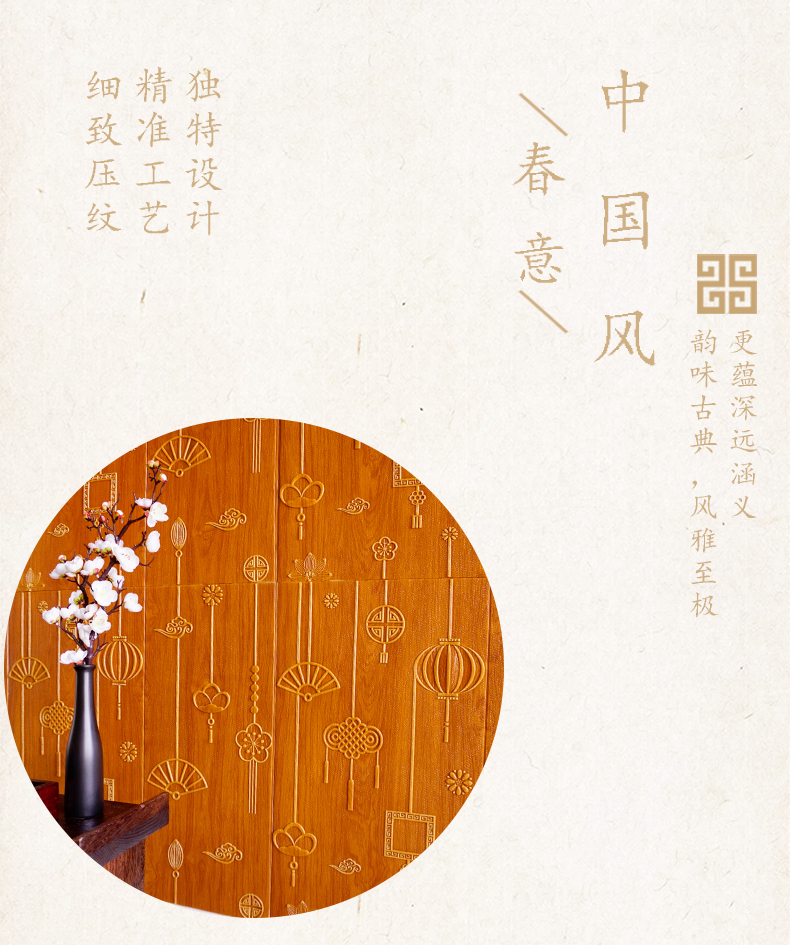 中国风
春意
更蕴深远涵义
韵味古典，风雅至极
独特设计
精准工艺
细致压纹